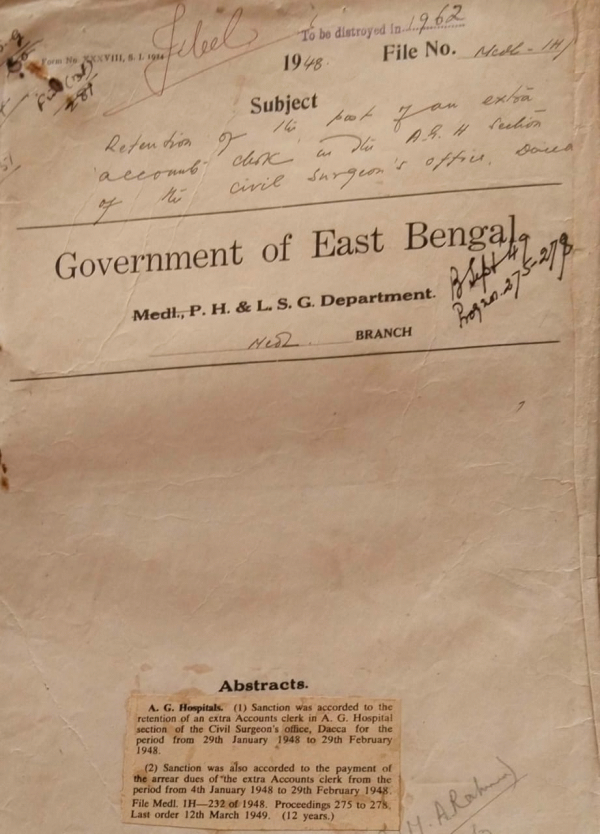 To be distroyed in 1962
Form No. XXXVIII, S. I. 1914
1948. File No. Medl - 1H/
Subject
Retention of the post of an extra
accounts clerk in the A.G.H Section
of the civil Surgeon's office, Dacca
Government of East Bengal
B Sept 49
Prog no. 275-278
Medl., P. H. & L. S. G. Department.
Medl. BRANCH
Abstracts.
A. G. Hospitals. (1) Sanction was accorded to the
retention of an extra Accounts clerk in A. G. Hospital
section of the Civil Surgeon's office, Dacca for the
period from 29th January 1948 to 29th February
1948.
(2) Sanction was also accorded to the payment of
the arrear dues of the extra Accounts clerk from the
period from 4th January 1948 to 29th February 1948.
File Medl. 1H—232 of 1948. Proceedings 275 to 278.
Last order 12th March 1949. (12 years.)